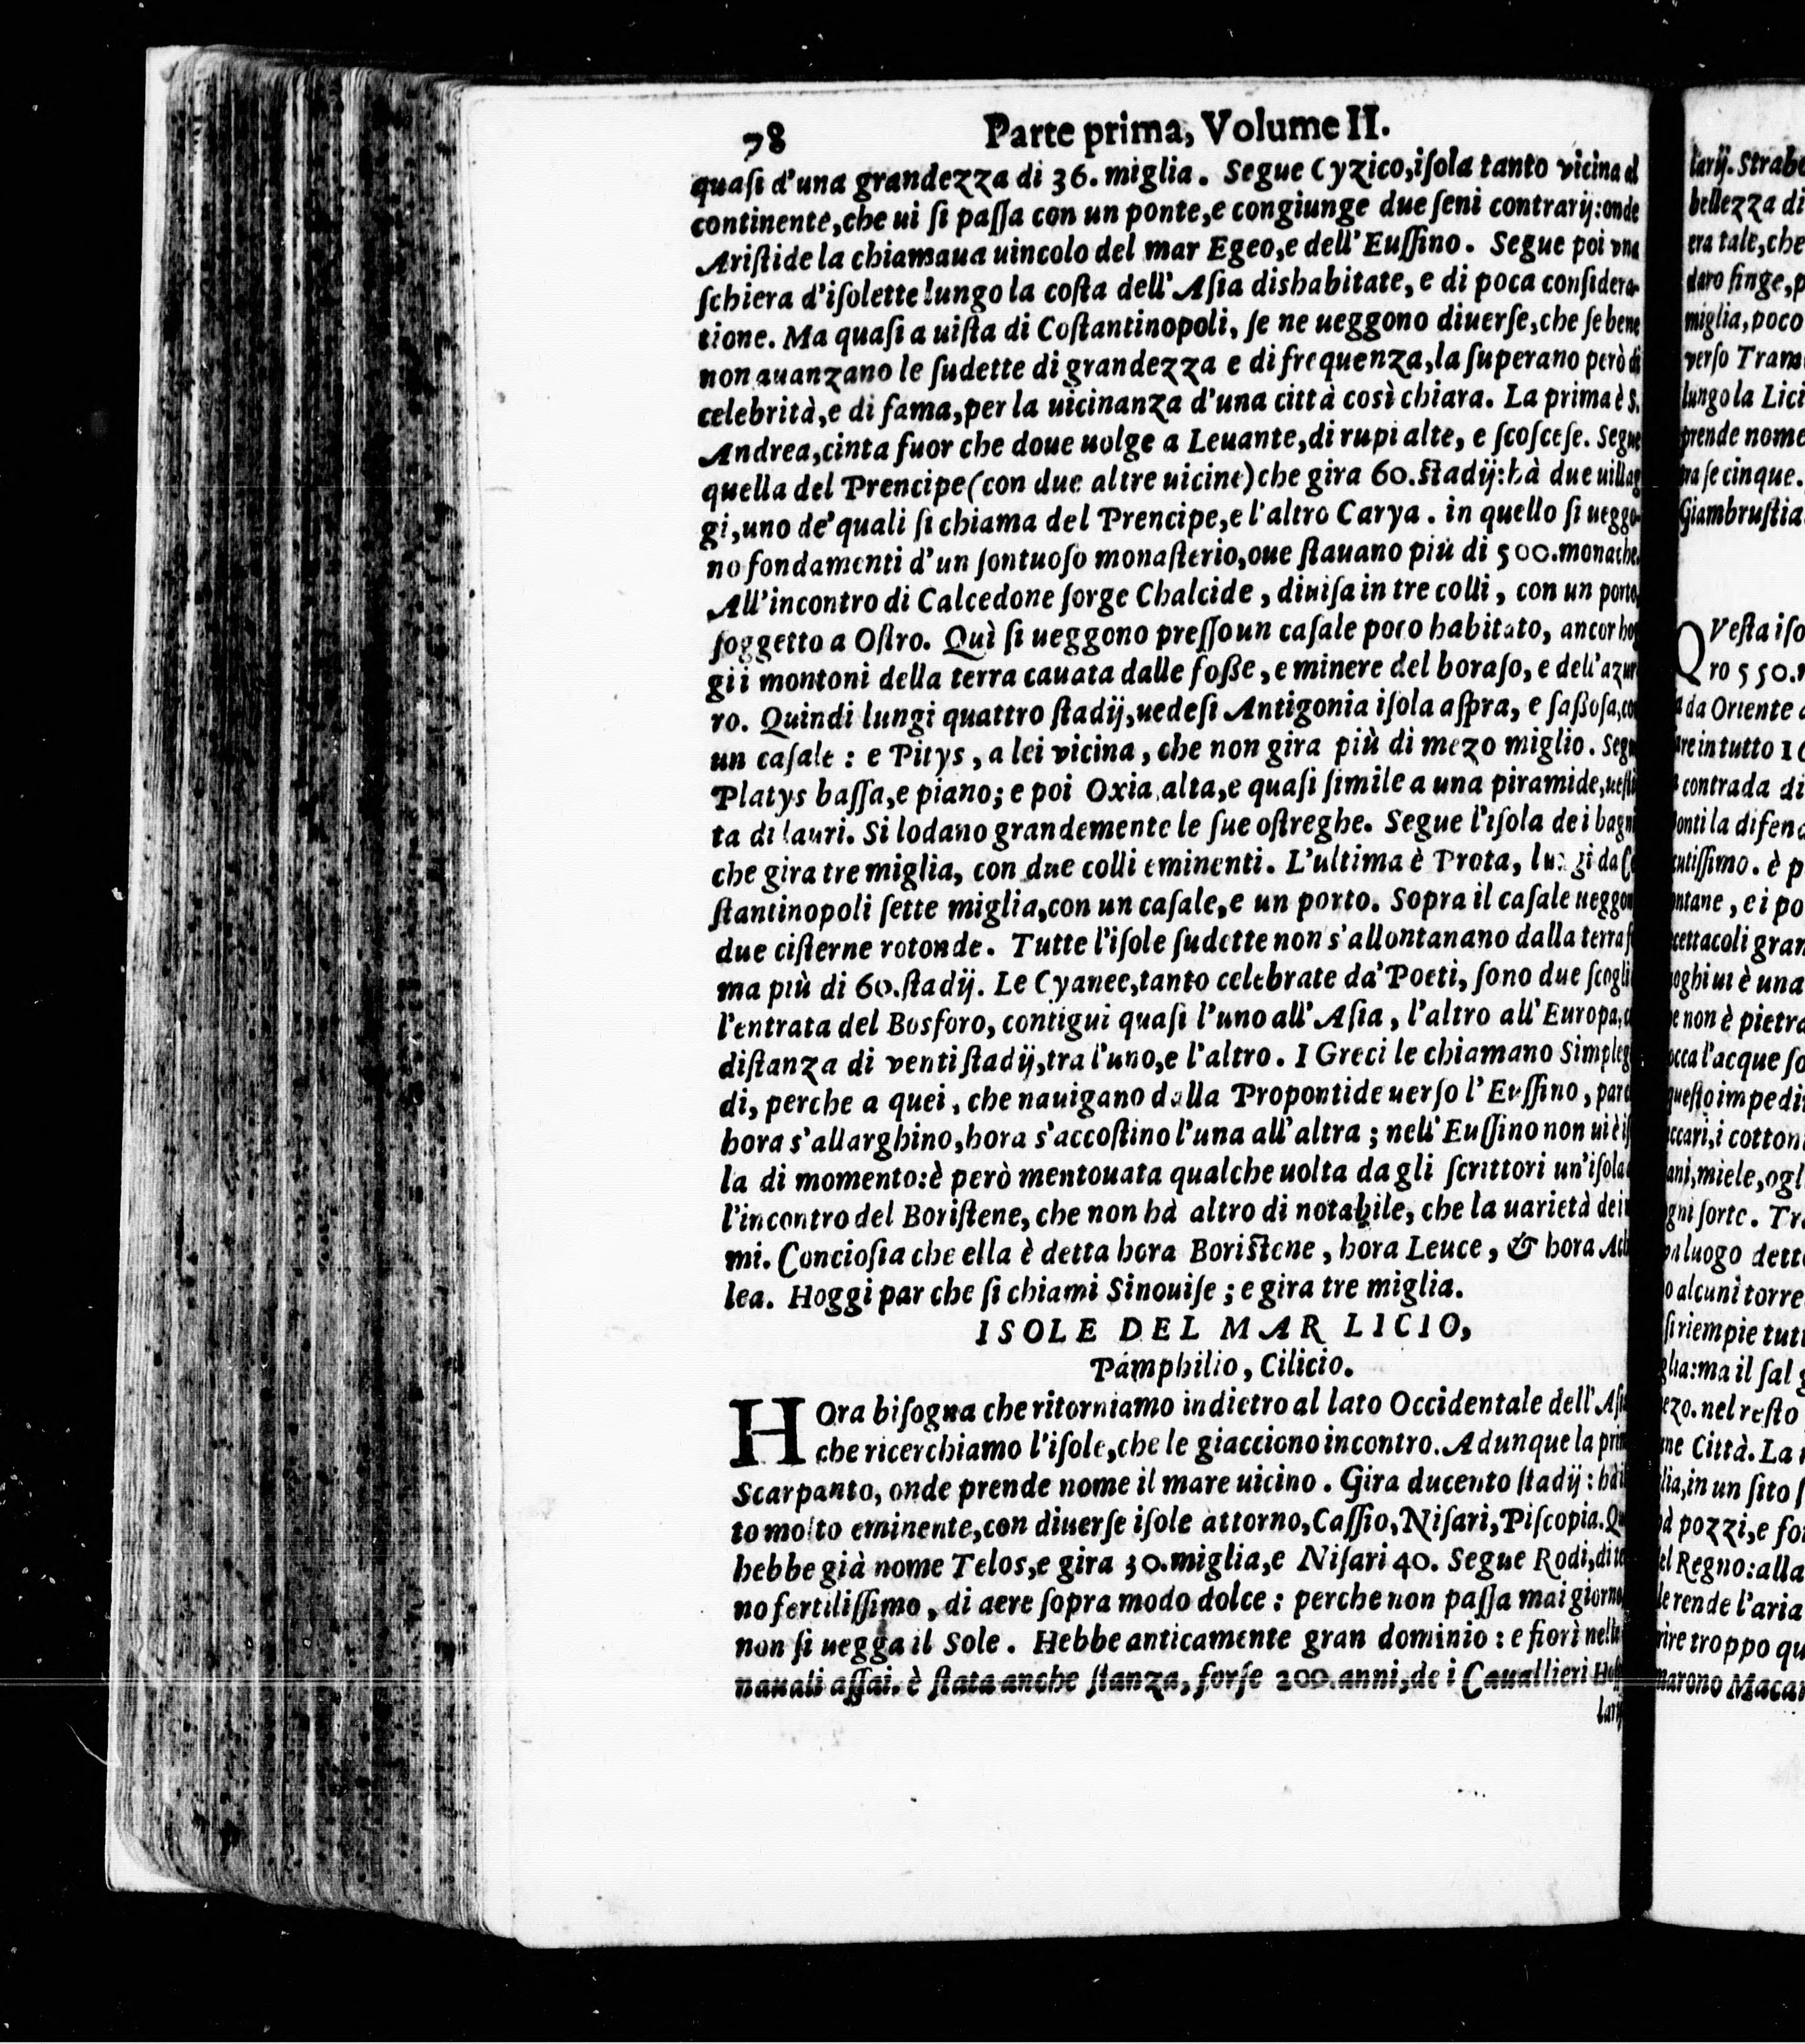 78 Parte prima, Volume II.
quaſi d'una grandezza di 36. miglia. Segue Cyzico,iſola tanto vicina al
continente,che ui ſi paſſa con un ponte,e congiunge due ſeni contrarij:onde
Ariſtide la chiamaua uincolo del mar Egeo,e dell'Euſſino. Segue poi vna
ſchiera d'iſolette lungo la coſta dell'Aſia dishabitate, e di poca conſidera-
tione. Ma quaſi a uiſta di Coſtantinopoli, ſe ne ueggono diuerſe,che ſe bene
non auanzano le ſudette di grandezza e di frequenza,la ſuperano però di
celebrità,e di fama,per la uicinanza d'una città così chiara. La prima è S.
Andrea,cinta fuor che doue uolge a Leuante,di rupi alte, e ſcoſceſe. Segue
quella del Prencipe(con due altre uicine)che gira 60.ſtadij:hà due uillag
gi,uno de'quali ſi chiama del Prencipe,e l'altro Carya. in quello ſi ueggo-
no fondamenti d'un ſontuoſo monaſterio,oue ſtauano più di 500.monache.
All'incontro di Calcedone ſorge Chalcide, diuiſa in tre colli, con un porto,
ſoggetto a Oſtro. Quì ſi ueggono preſſo un caſale poco habitato, ancor hog
gi i montoni della terra cauata dalle foſſe, e minere del boraſo, e dell'azur
ro. Quindi lungi quattro ſtadij,uedeſi Antigonia iſola aſpra, e ſaſſoſa,
un caſale: e Pitys, a lei vicina, che non gira più di mezo miglio.
Platys baſſa,e piano; e poi Oxia alta,e quaſi ſimile a una piramide,ueſti
ta di lauri. Si lodano grandemente le ſue oſtreghe. Segue l'iſola de i
che gira tre miglia, con due colli eminenti. L'ultima è Prota, da
ſtantinopoli ſette miglia,con un caſale,e un porto. Sopra il caſale
due ciſterne rotonde. Tutte l'iſole ſudette non s'allontanano dalla terra
ma più di 60.ſtadij. Le Cyanee,tanto celebrate da'Poeti, ſono due ſcogli
l'entrata del Bosforo, contigui quaſi l'uno all'Aſia, l'altro all'Europa,
diſtanza di venti ſtadij,tra l'uno,e l'altro. I Greci le chiamano Simpleg
di, perche a quei, che nauigano dalla Propontide uerſo l'Euſſino,
hora s'allarghino,hora s'accoſtino l'una all'altra; nell'Euſſino non ui è
la di momento:è però mentouata qualche uolta da gli ſcrittori un'iſola
l'incontro del Boriſtene, che non hà altro di notabile, che la uarietà de i
mi. Concioſia che ella è detta hora Boriſtene, hora Leuce, & hora
lea. Hoggi par che ſi chiami Sinouiſe; e gira tre miglia.
ISOLE DEL MAR LICIO,
Pamphilio, Cilicio.
HOra biſogna che ritorniamo indietro al lato Occidentale dell'
che ricerchiamo l'iſole,che le giacciono incontro. Adunque la
Scarpanto, onde prende nome il mare uicino. Gira ducento ſtadij:
to molto eminente,con diuerſe iſole attorno,Caſſio,Niſari,Piſcopia.
hebbe già nome Telos,e gira 30.miglia,e Niſari 40. Segue Rodi,di
no fertiliſſimo, di aere ſopra modo dolce: perche non paſſa mai
non ſi uegga il Sole. Hebbe anticamente gran dominio: e fiorì
nauali aſſai. è ſtata anche ſtanza, forſe 200.anni,de i Cauallieri
larij. Strabo
bellezza di
era tale,che
daro finge,
miglia,poco
verſo
lungo la
prende nome
ſe cinque.
Veſta
ro 550.
da Oriente
in tutto
contrada di
la
è
e i
gran
è una
non è pietra
l'acque
i
miele,
ſorte.
luogo
alcuni torre
riempie
ma il ſal
nel reſto
Città. La
in un ſito
pozzi,e
Regno:alla
rende l'aria
troppo